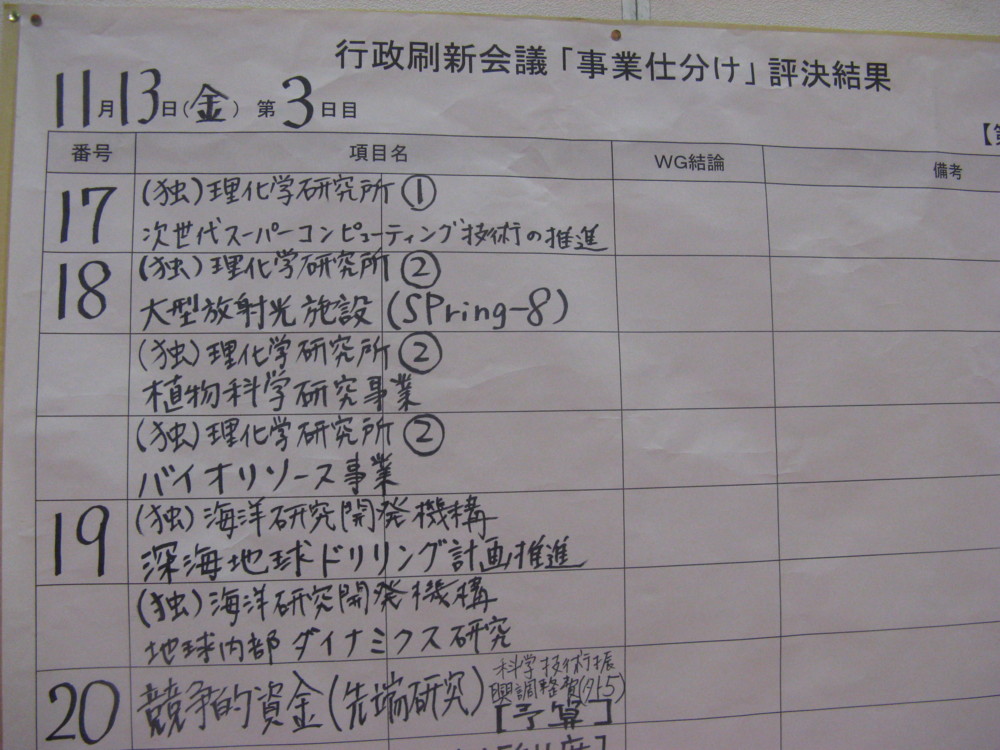 行政刷新会議「事業仕分け」評決結果
11月13日(金) 第3日目
【第
番号 項目名 WG結論 備考
17 (独)理化学研究所①
次世代スーパーコンピューティング技術の推進
18 (独)理化学研究所②
大型放射光施設(SPring-8)
(独)理化学研究所②
植物科学研究事業
(独)理化学研究所②
バイオリソース事業
19 (独)海洋研究開発機構
深海地球ドリリング計画推進
(独)海洋研究開発機構
地球内部ダイナミクス研究
20 競争的資金(先端研究)
科学技術振
興調整費(外5)
[予算]